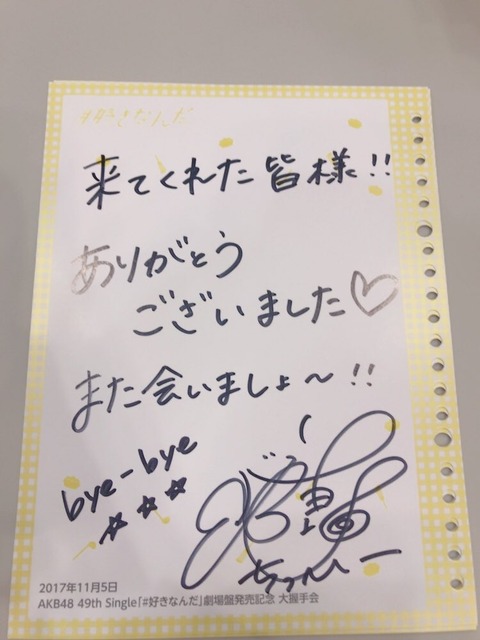 #好きなんだ
来てくれた皆様!!
ありがとう
ございました♡
また会いましょ〜!!
bye-bye
☆☆☆
2017年11月5日
AKB48 49th Single「#好きなんだ」劇場盤発売記念 大握手会